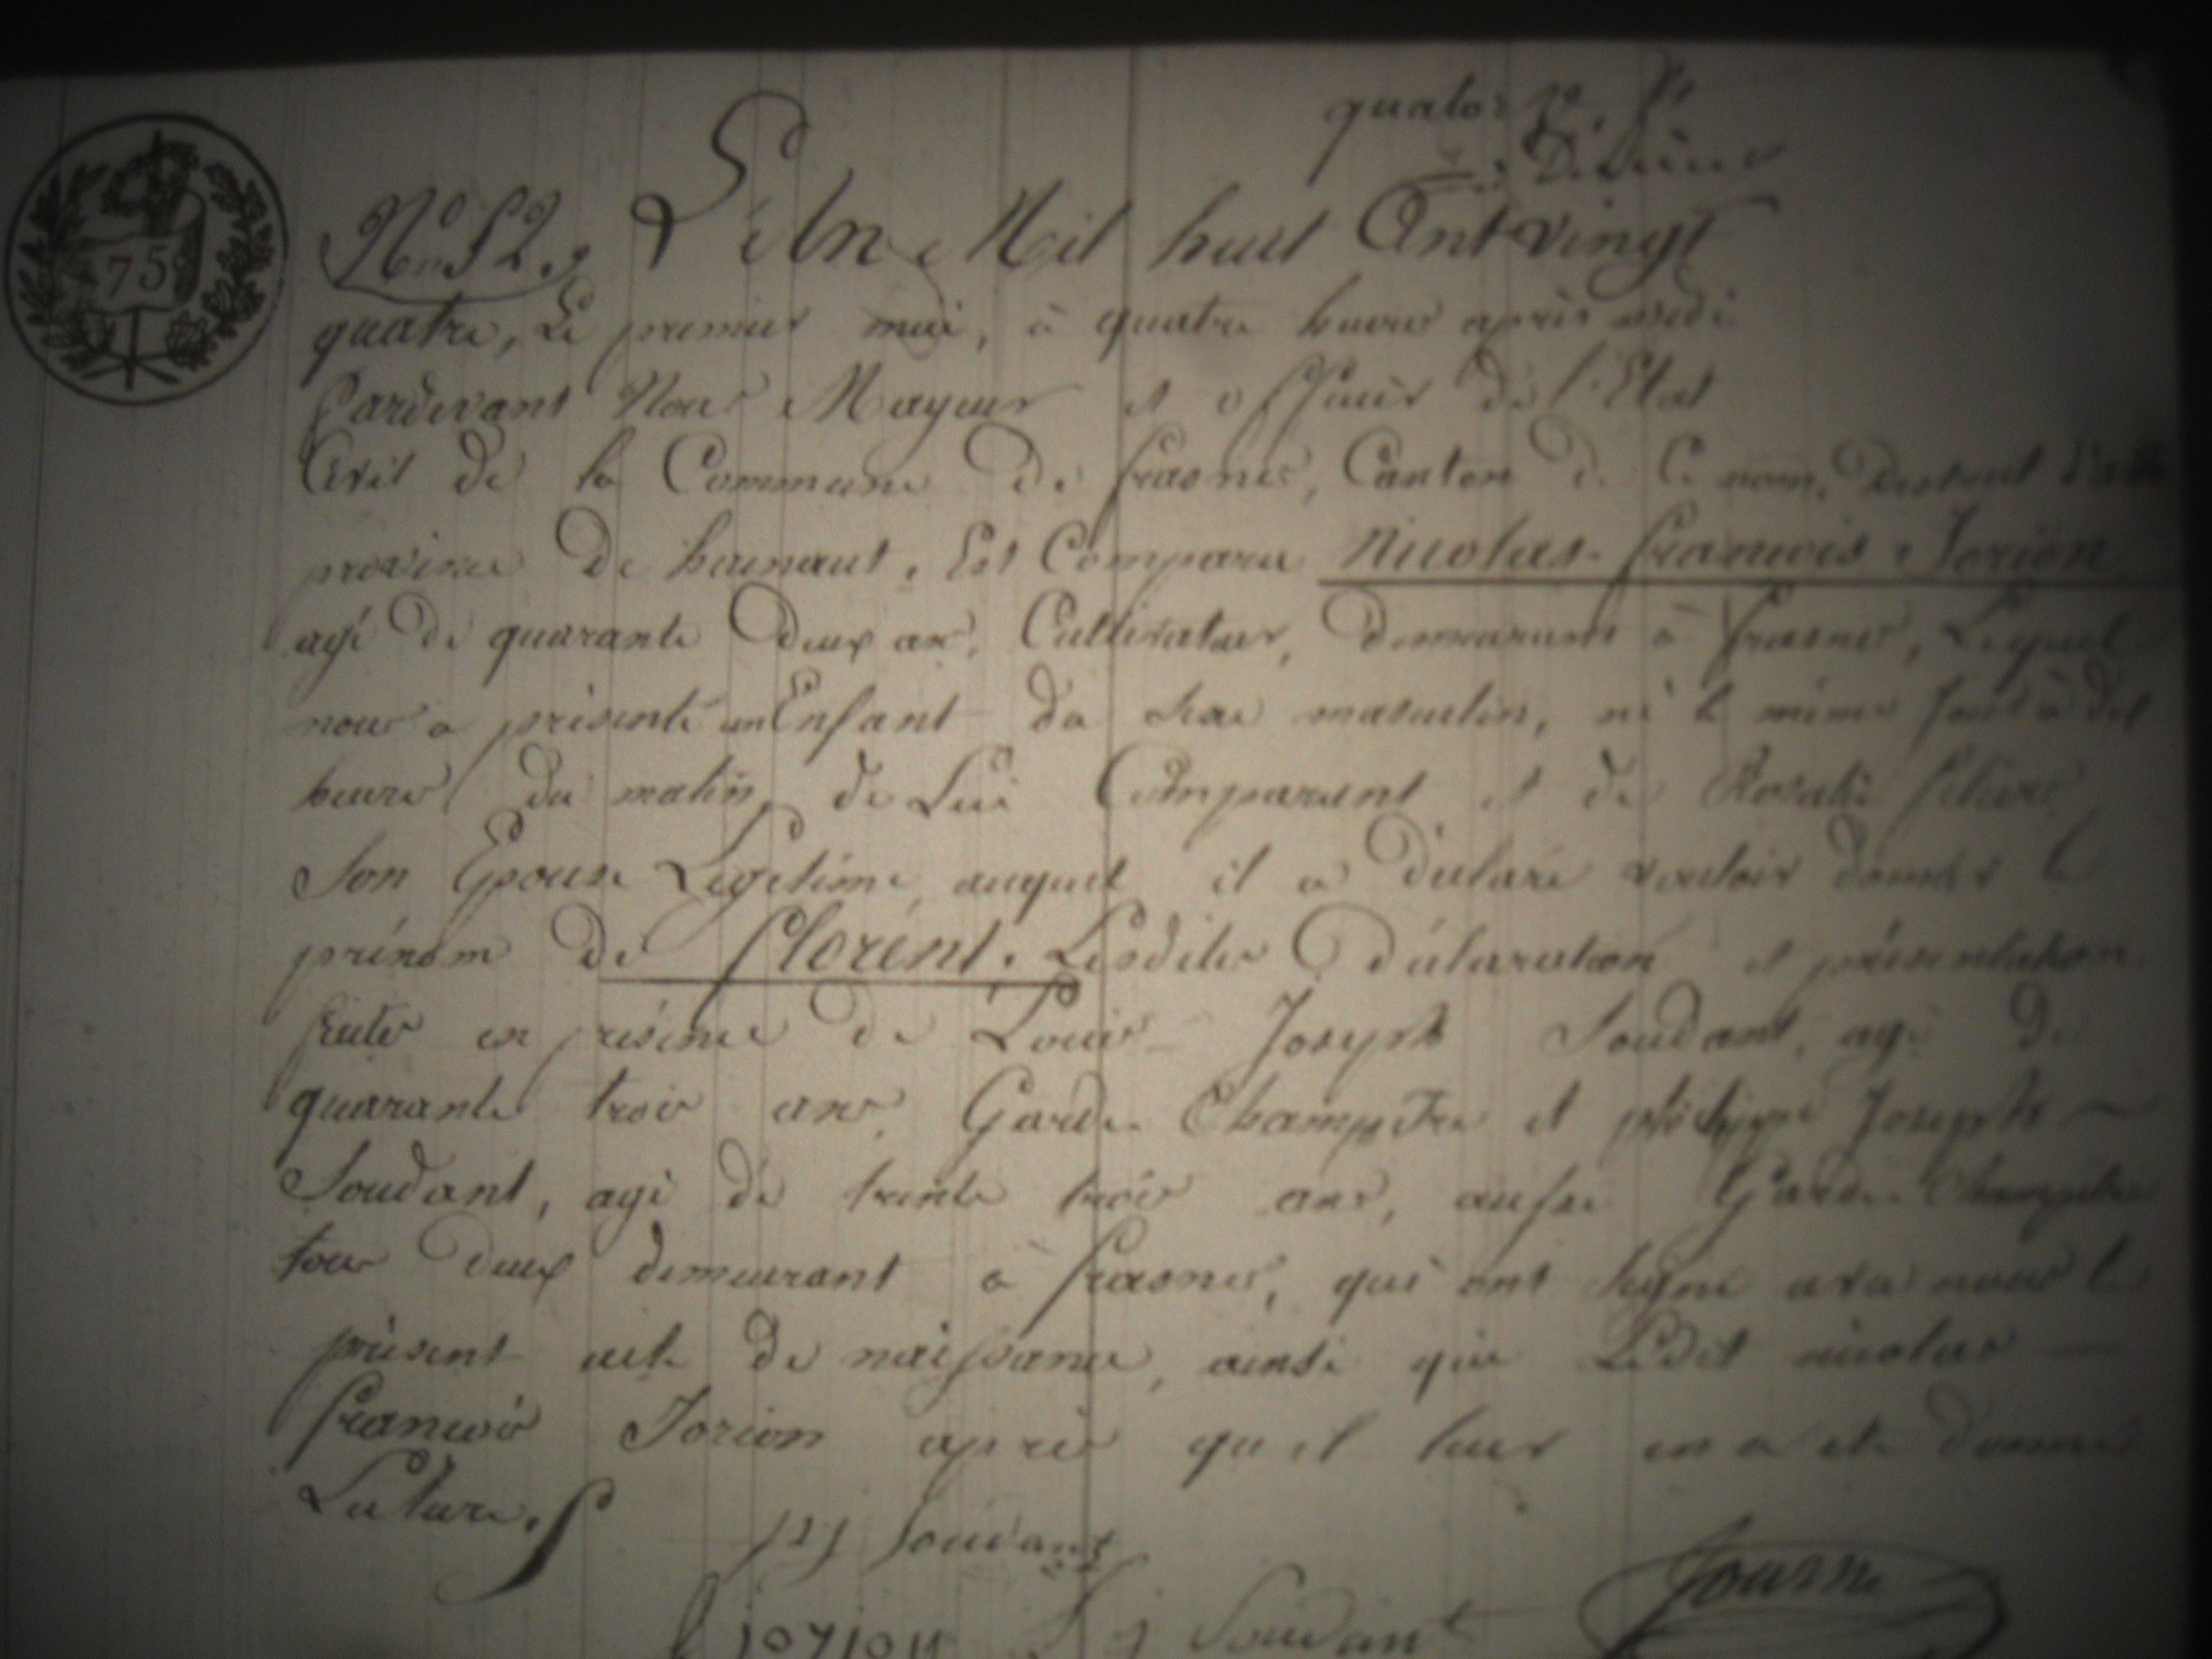 75
quatorze
Nº 52, L'An Mil huit Cent vingt
quatre, Le premier mai, à quatre heures après midi
Pardevant Nous Mayeur et officier de l'Etat
Civil de la Commune de frasnes, Canton de Ce nom, District
province de hainaut, Est Comparu Nicolas-francois Jorion
agé de quarante Deux ans, Cultivateur, demeurant à frasnes, Lequel
nous a présenté un Enfant du sexe masculin, né le même jour à dix
heures du matin, de Lui Comparant et de Rosalie
Son Epouse Legitime, auquel il a déclaré vouloir donner le
prénom de florent. Lesdites Déclaration et présentation
faites en présence de Louis-Joseph Soudant, agé de
quarante trois ans, Garde Champêtre et Joseph
Soudant, agé de trente trois ans, aussi Garde Champêtre
tous deux demeurant à frasnes, qui ont signé avec nous le
présent acte de naissance, ainsi que Ledit nicolas
francois Jorion après qu'il leur en a été donné
Lecture.
Soudant
jorion L j Soudant